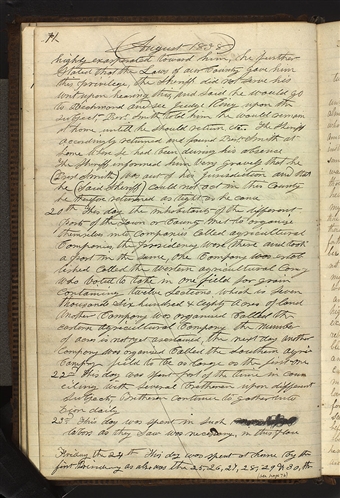 71.
(August 1838)
highly exasperated toward him, he further
stated that the Laws of our County gave him
this privilege the Sheriff did not serve his
writ upon hearing this, and said he would go
to Richmond and see Judge King upon the
subject. Prst. Smith told him he would remain
at home until he should return &c. The Sheriff
accordingly returned and found Prst Smith at
home where he had been during his absence
The Sheriff informed him very gravely that he
(Prst Smith) was out of his jurisdiction and that
he (said Sheriff) could not act in this County
he therefore returned as light as he came
20th This day the inhabitants of the different
parts of the Town or County met to organize
themselves into companies called agricultural
Companies, the presidency were there and took
a part in the same, one Company was estab
lished called the western agricultural Com
who voted to take in one field for grain
containing twelve sections which is seven
thousands six hundred & eighty acres of land
Another Company was organised Called the
eastern agricultural Company the number
of acres is not yet ascertained, the next day another
Company was organised Called the southern agri
Company field to be as large as the first one
22nd This day was spent part of the time in coun
ciling with several Brethren upon different
subjects, Brethren continue to gather into
Zion daily
23rd This day was spent in such
labors as they saw was necessary in this place
Friday the 24th This day was spent at home by the
first Presidency as also was the 25, 26, 27, 28, 29 & 30, th